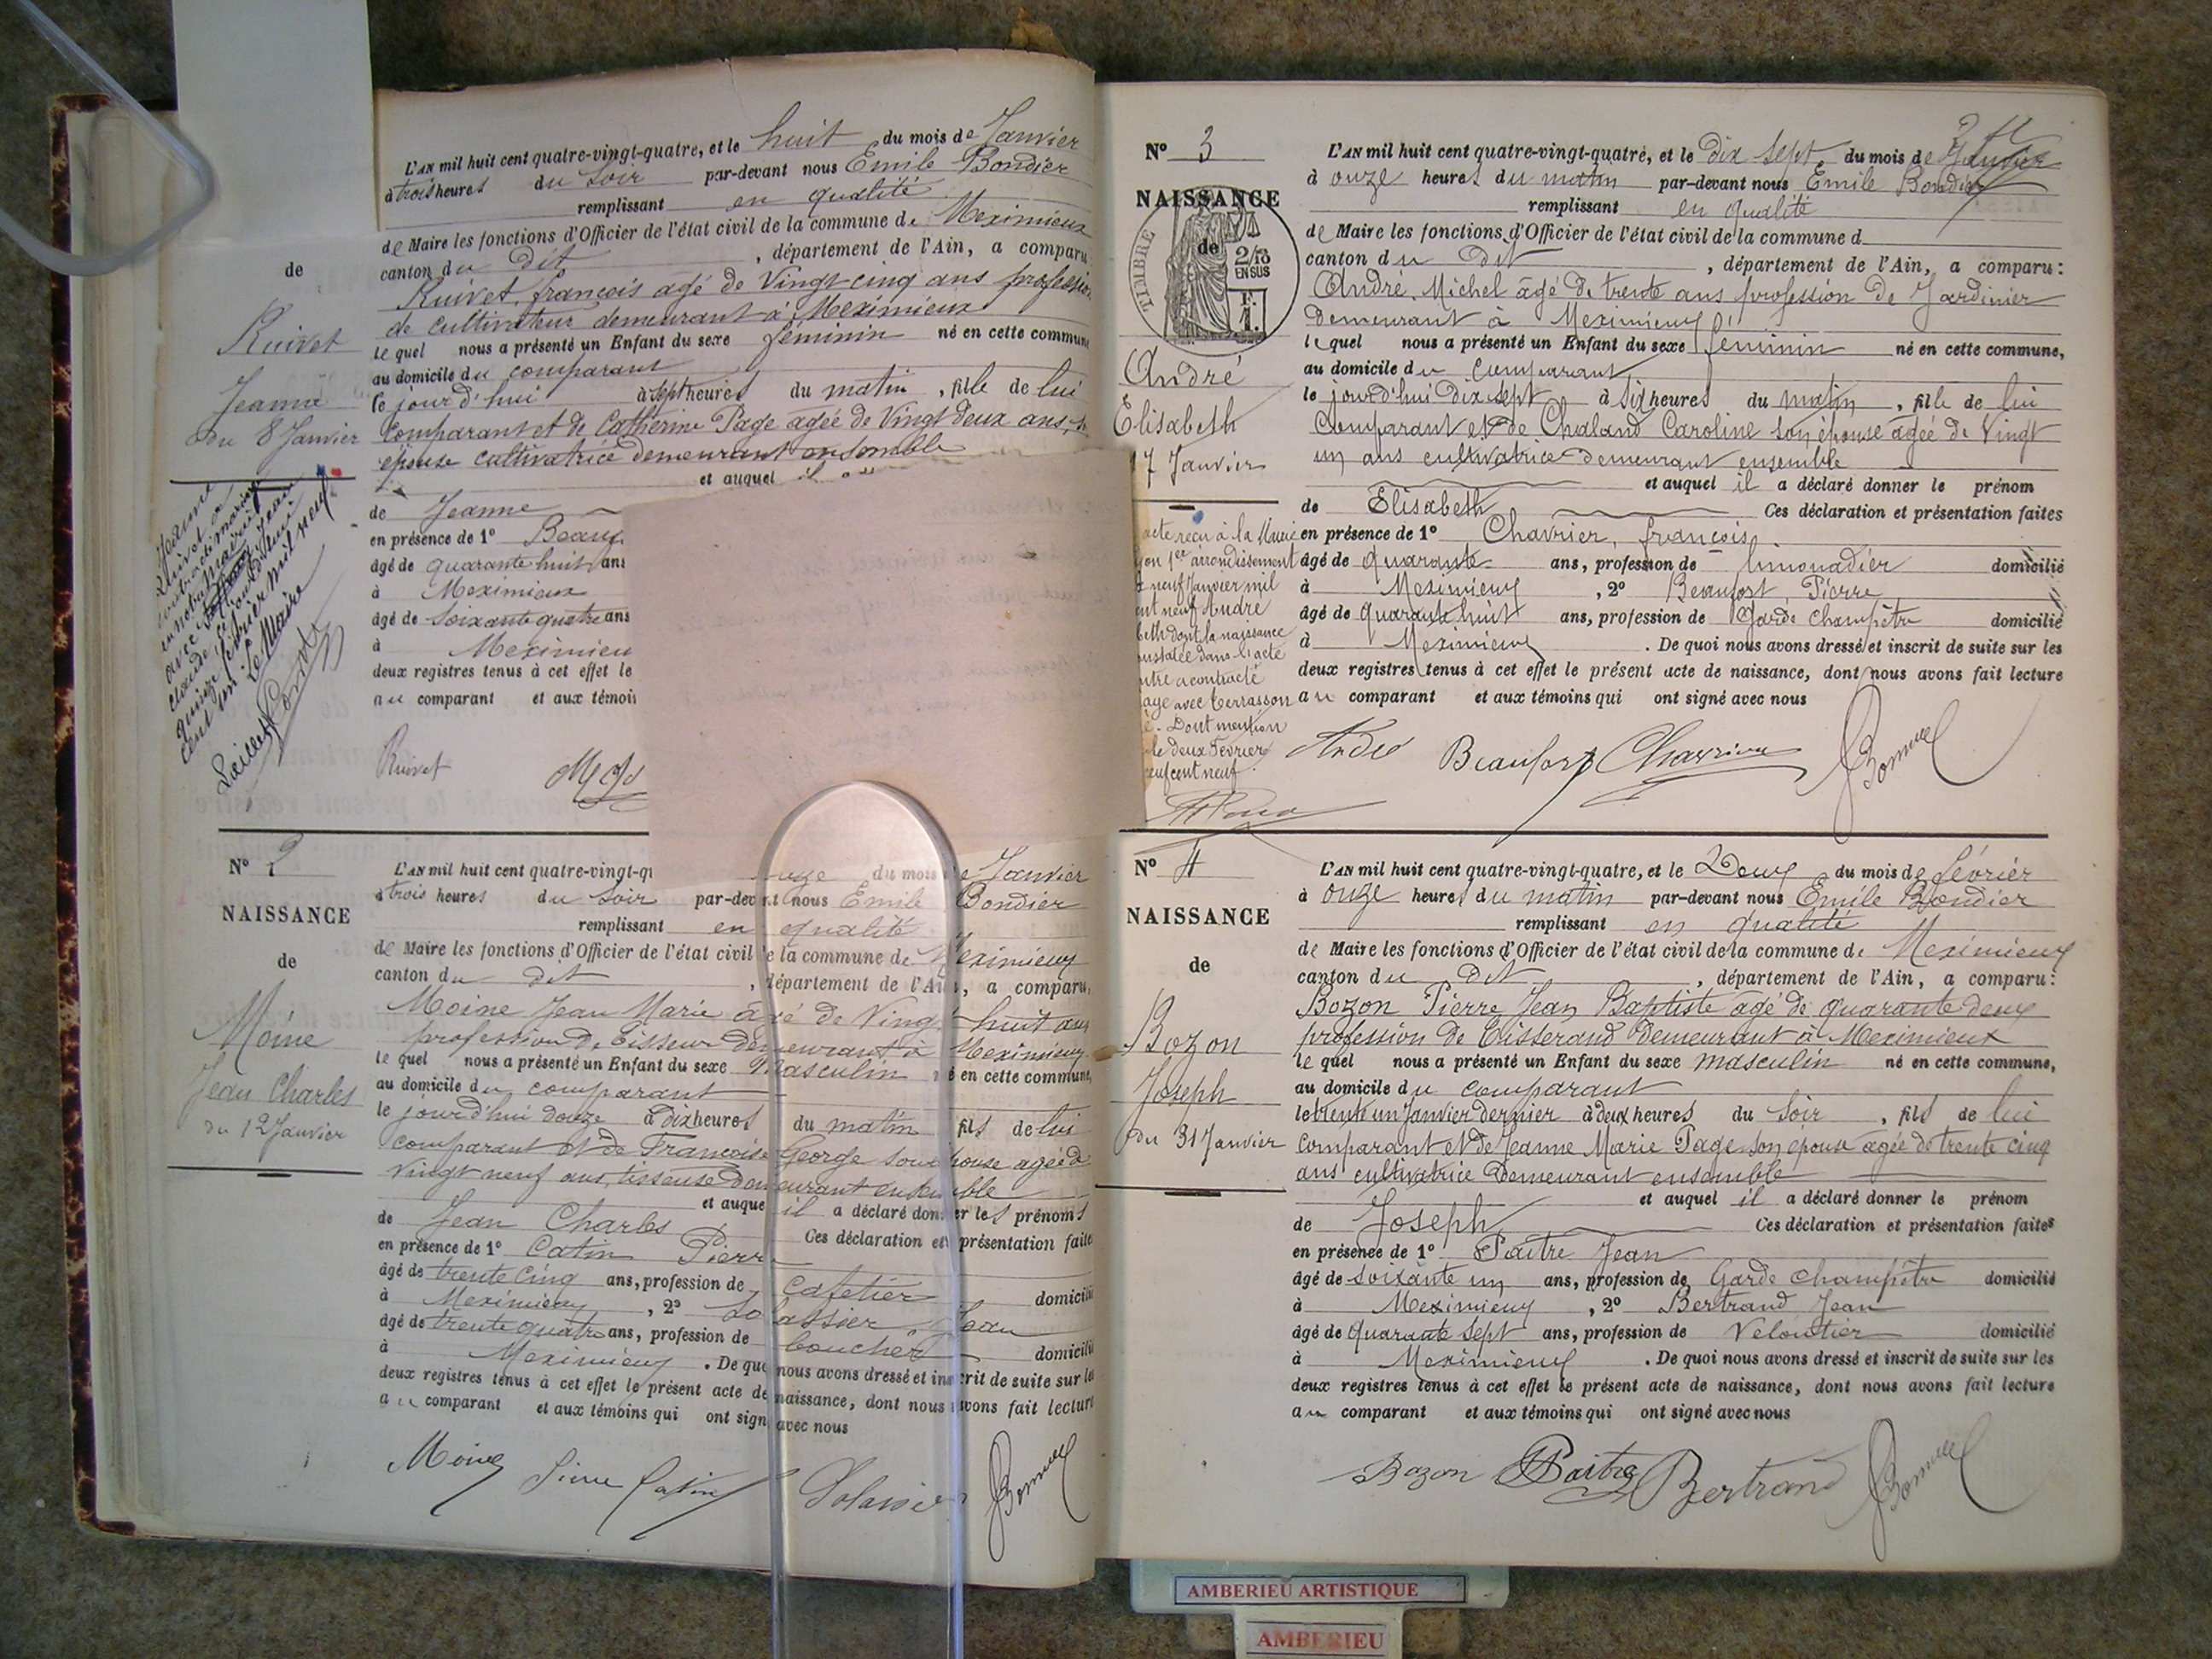 L'AN mil huit cent quatre-vingt-quatre, et le huit du mois de Janvier
à trois heures du soir par-devant nous Emile Bondier
remplissant en qualité
de Maire les fonctions d'Officier de l'état civil de la commune de Meximieux
canton du dit, département de l'Ain, a comparu
Ruivet, françois agé de Vingt-cinq ans profession
de cultivateur demeurant à Meximieux
le quel nous a présenté un Enfant du sexe féminin né en cette commune
au domicile du comparant
le jour d'hui à sept heures du matin, fille de lui
Comparant et de Catherine Page agée de Vingt deux ans,
épouse cultivatrice demeurant ensemble
et auquel il
de Jeanne
en présence de 1º
âgé de quarante huit ans
à Meximieux
âgé de soixante quatre ans
à Meximieu
deux registres tenus à cet effet le
au comparant et aux témoi
Ruivet
de
Ruivet
Jeanne
du 8 Janvier
Jeanne
Ruivet a
contracté mariage
avec
quinze février mil neuf
cent un Le Maire
Nº 2
NAISSANCE
de
Moine
Jean Charles
du 12 Janvier
L'AN mil huit cent quatre-vingt-q du mois de Janvier
à trois heures du soir par-devant nous Emile Bondier
remplissant en qualité
de Maire les fonctions d'Officier de l'état civil de la commune de Meximieux
canton du dit, département de l'Ain, a comparu,
Moine Jean Marie âgé de Vingt-huit ans
profession de Tisseur demeurant à Meximieux
le quel nous a présenté un Enfant du sexe Masculin né en cette commune,
au domicile du comparant
le jourd'hui douze à dix heures du matin fils de lui
comparant et de Françoise George son épouse agée de
vingt neuf ans, tisseuse demeurant ensemble
et auquel il a déclaré donner les prénoms
de Jean Charles Ces déclaration et présentation faite
en présence de 1º Catin Pierre
âgé de trente cinq ans, profession de cafetier domicilié
à Meximieux, 2º Jean
âgé de trente quatre ans, profession de boucher domicilié
à Meximieux. De quoi nous avons dressé et inscrit de suite sur les
deux registres tenus à cet effet le présent acte de naissance, dont nous avons fait lecture
au comparant et aux témoins qui ont signé avec nous
Moine Pierre Catin
Nº 3
NAISSANCE
de
TIMBRE
2/10
EN SUS
F.
1.
André
Elisabeth
17 Janvier
acte reçu à la Mairie
1er arrondissement
neuf Janvier mil
cent neuf André
beth dont la naissance
constatée dans l'acte
ntre a contracté
age avec Terrasson
Dont mention
le deux Février
neuf cent neuf.
L'AN mil huit cent quatre-vingt-quatre, et le dix sept du mois de Janvier
à onze heures du matin par-devant nous Emile Bondier
remplissant en qualité
de Maire les fonctions d'Officier de l'état civil de la commune d
canton du dit, département de l'Ain, a comparu:
André, Michel âgé de trente ans profession de Jardinier
demeurant à Meximieux
le quel nous a présenté un Enfant du sexe féminin né en cette commune,
au domicile du comparant
le jourd'hui dix sept à six heures du matin, fille de lui
Comparant et de Chaland Caroline son épouse agée de Vingt
un ans cultivatrice demeurant ensemble
et auquel il a déclaré donner le prénom
de Elisabeth Ces déclaration et présentation faites
en présence de 1º Chavrier, françois
âgé de quarante ans, profession de limonadier domicilié
à Meximieux, 2º Beaufort, Pierre
âgé de quarante huit ans, profession de Garde champêtre domicilié
à Meximieux. De quoi nous avons dressé et inscrit de suite sur les
deux registres tenus à cet effet le présent acte de naissance, dont nous avons fait lecture
au comparant et aux témoins qui ont signé avec nous
André Beaufort Chavrier
Nº 4
NAISSANCE
de
Bozon
Joseph
du 31 Janvier
L'AN mil huit cent quatre-vingt-quatre, et le Deux du mois de février
à onze heures du matin par-devant nous Emile Bondier
remplissant en qualité
de Maire les fonctions d'Officier de l'état civil de la commune de Meximieux
canton du dit, département de l'Ain, a comparu:
Bozon Pierre Jean Baptiste agé de quarante deux
profession de Tisserand demeurant à Meximieux
le quel nous a présenté un Enfant du sexe masculin né en cette commune,
au domicile du comparant
le trente un Janvier dernier à deux heures du soir, fils de lui
Comparant et de Jeanne Marie Page son épouse agée de trente cinq
ans cultivatrice demeurant ensemble
et auquel il a déclaré donner le prénom
de Joseph Ces déclaration et présentation faites
en présence de 1º Paitre Jean
âgé de soixante un ans, profession de Garde champêtre domicilié
à Meximieux, 2º Bertrand Jean
âgé de quarante sept ans, profession de Veloutier domicilié
à Meximieux. De quoi nous avons dressé et inscrit de suite sur les
deux registres tenus à cet effet le présent acte de naissance, dont nous avons fait lecture
au comparant et aux témoins qui ont signé avec nous
Bozon Paitre Bertrand
AMBERIEU ARTISTIQUE
AMBERIEU